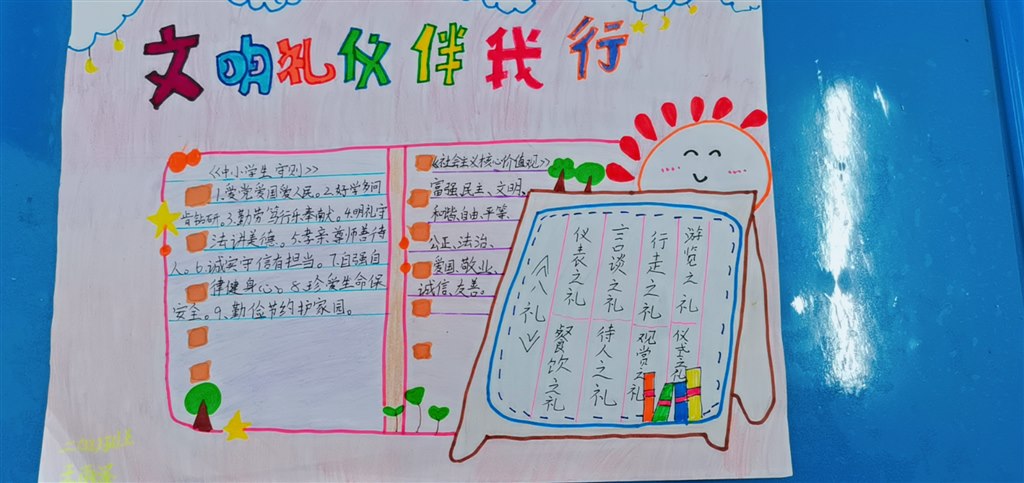 文明礼仪伴我行
《中小学生守则》
1.爱党爱国爱人民。2.好学多问
肯钻研。3.勤劳笃行乐奉献。4.明礼守
法讲美德。5.孝亲尊师善待
人。6.诚实守信有担当。7.自强自
律健身心。8.珍爱生命保
安全。9、勤俭节约护家园。
《社会主义核心价值观》
富强、民主、文明、
和谐、自由、平等、
公正、法治、
爱国、敬业、
诚信、友善。
《八礼》
仪表之礼
餐饮之礼
言谈之礼
待人之礼
行走之礼
观赏之礼
游览之礼
仪式之礼